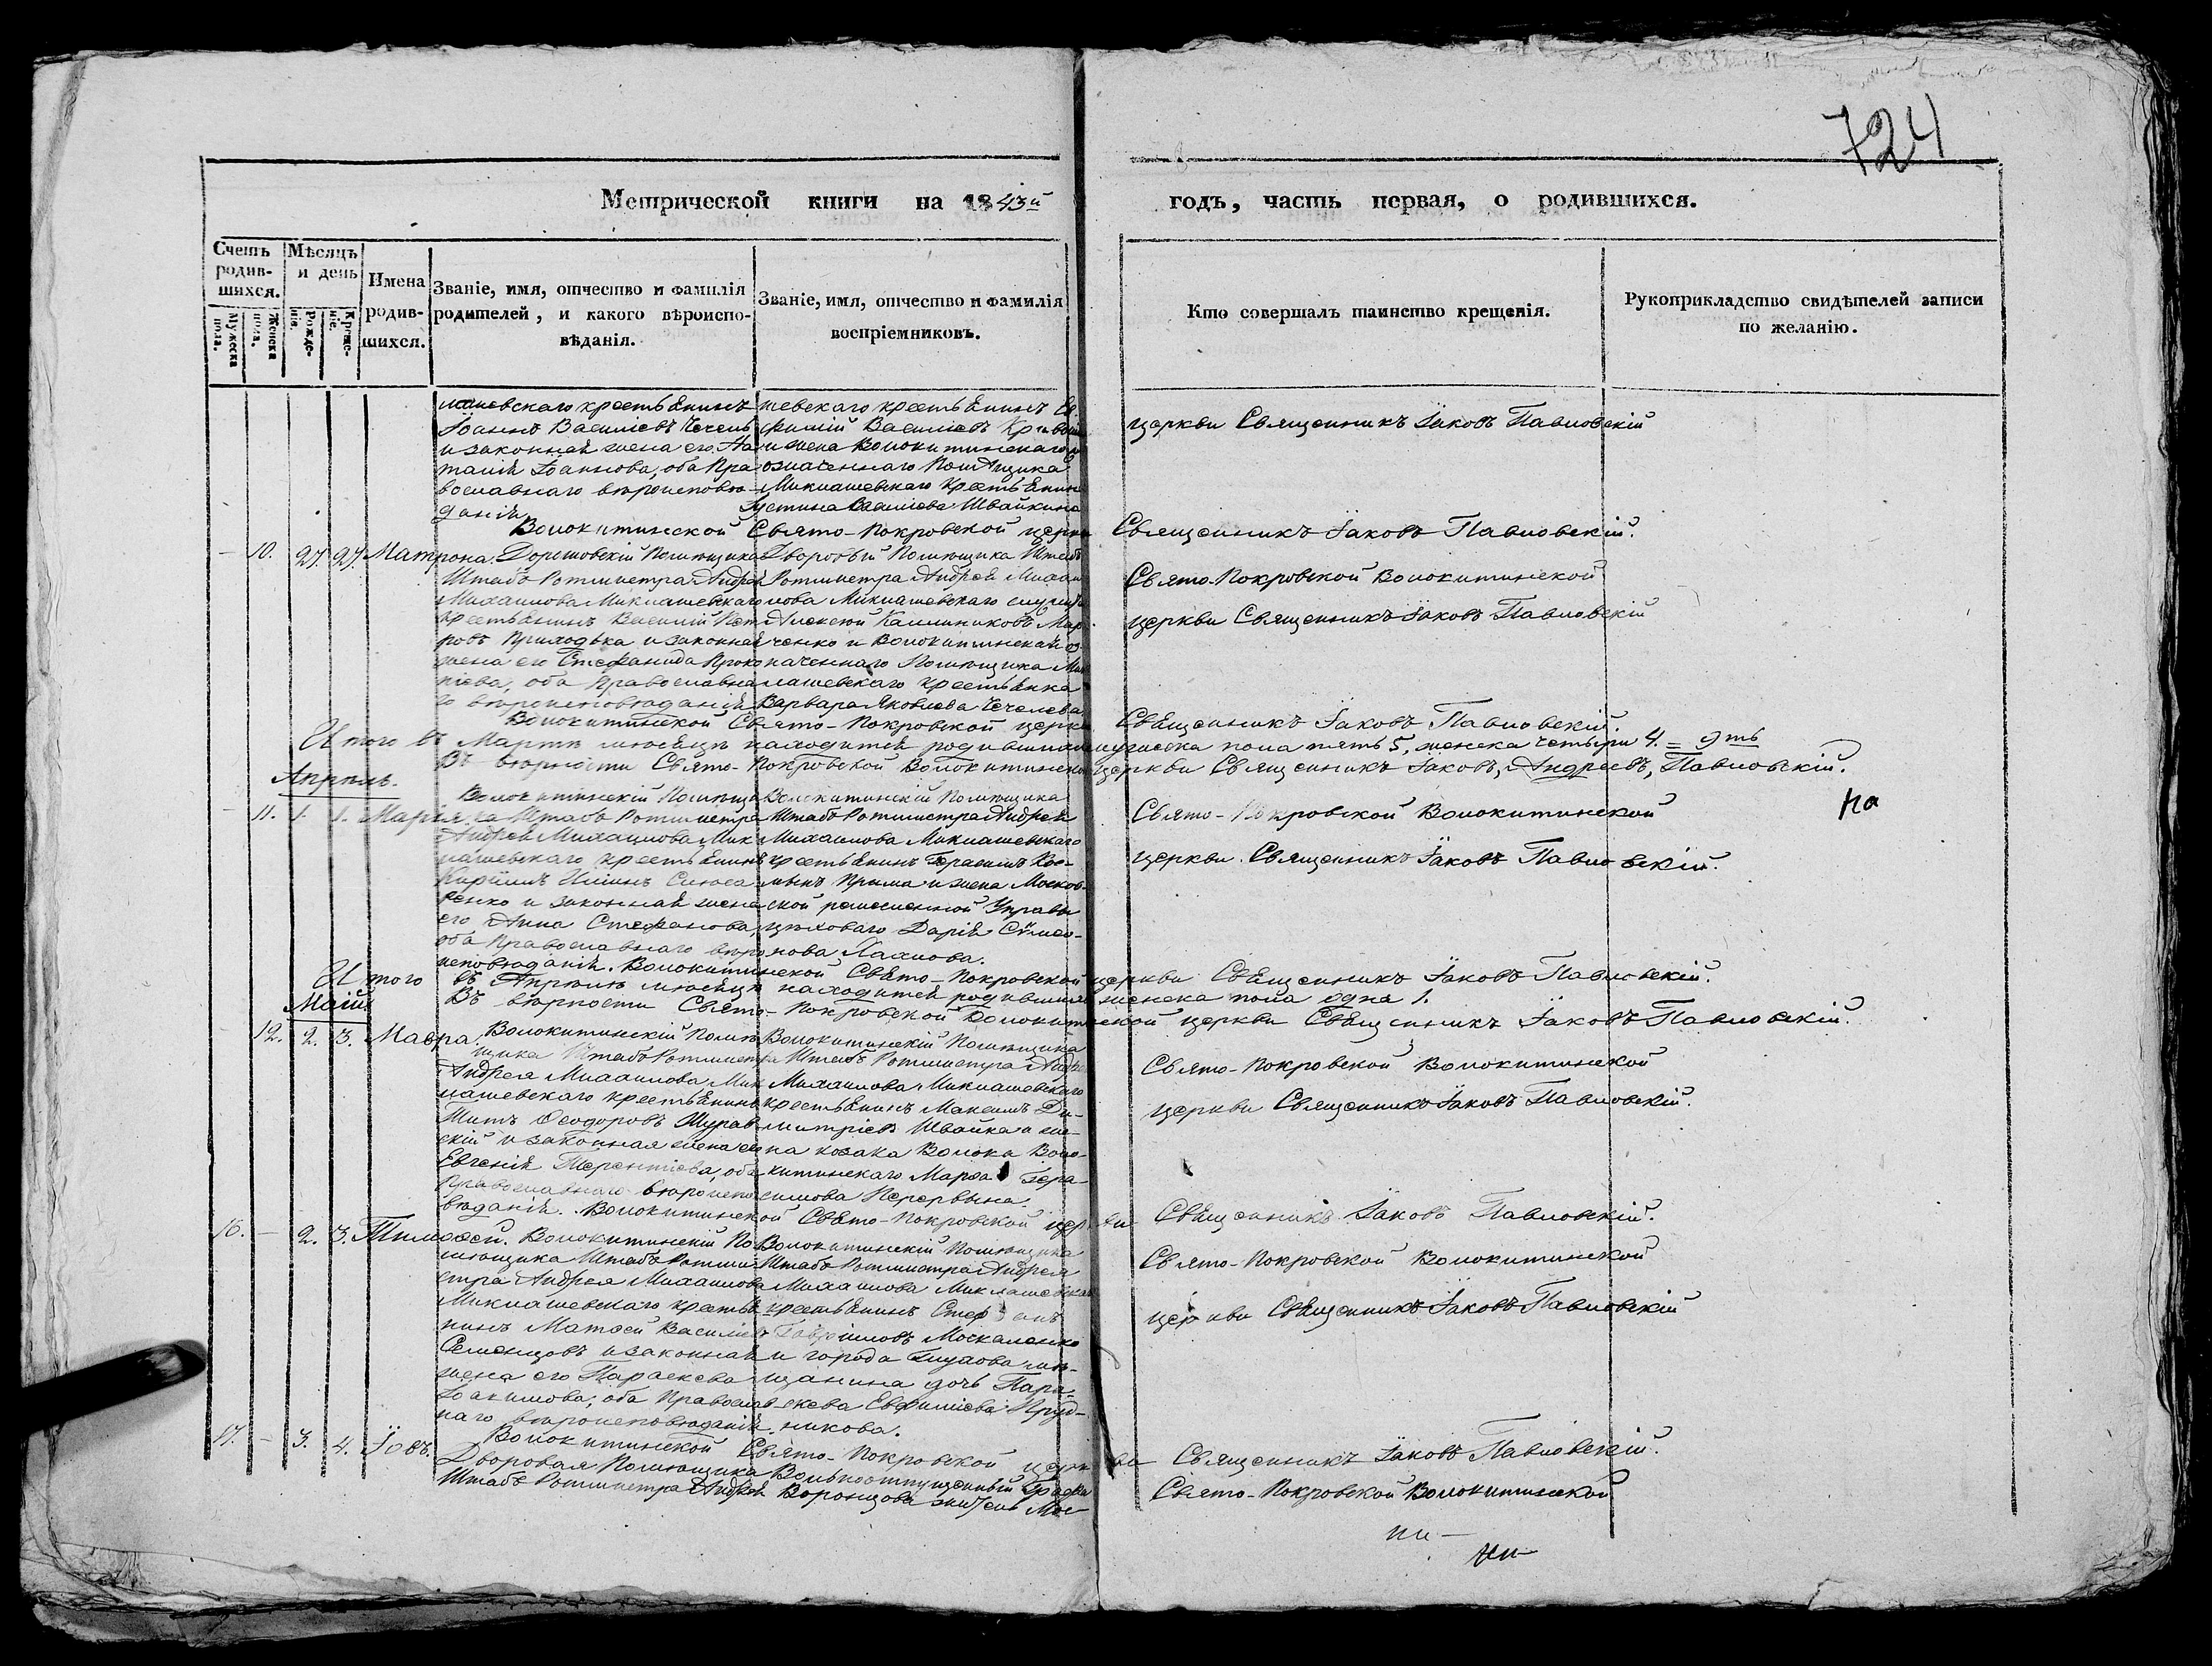 724
Метрической книги на 1843й годъ, часть первая, о родившихся.
Счетъ родившихся.
Мужеска пола.
Женска пола.
Мѣсяцъ и день
Рожденіе.
Крещеніе.
Имена родившихся.
Званіе, имя, отчество и фамилія родителей, и какого вѣроисповѣданія.
Званіе, имя, отчество и фамилія воспріемниковъ.
Кто совершалъ таинство крещенія.
Рукоприкладство свидѣтелей записи по желанію.
лашевскаго крестьянинъ
Іоаннъ Василіевъ Чечель
и законная жена его На
талія Іоаннова, оба пра
вославнаго вѣроисповѣ
данія
шевскаго крестьянинъ Ев
фимій Василіевъ
и жена Волокитинскаго
означеннаго Помѣщика
Миклашевскаго Крестьянина
Устина Василіева Швайкина
церкви Священникъ Іаковъ Павловскій
Волокитинской Свято-Покровской церкви Священникъ Іаковъ Павловскій.
– 10. 27. 27. Матрона.
Помѣщика
Штабъ Ротмистра Андрея
Михаилова Миклашевскаго
крестьянинъ Василій Пет
ровъ Приходька и законная
жена его Стефанида Проко
піева, оба Православна
го вѣроисповѣданія
Дворовый Помѣщика Штабъ
Ротмистра Андрея Михаи
лова Миклашевскаго
Алексѣй Калиниковъ Мар
ченко и Волокитинская оз
наченнаго Помѣщика Мик
лашевскаго крестьянка
Варвара Яковлева Чечелева
Свято-Покровской Волокитинской
церкви Священникъ Іаковъ Павловскій
Волокитинской Свято-Покровской церкви Священникъ Іаковъ Павловскій.
Итого въ Мартѣ мѣсяцѣ находится родившихся мужеска пола пять 5, женска четыри 4. = 9ть
Въ вѣрности Свято-Покровской Волокитинской церкви Священникъ Іаковъ, Андреевъ, Павловскій.
Апрѣль.
– 11. 1. 1. Марія
Волокитинскій Помѣщи
ка Штабъ Ротмистра
Андрея Михаилова Мик
лашевскаго крестьянинъ
Кириллъ Иліинъ Слюса
ренко и законная жена
его Анна Стефанова,
оба Православнаго вѣро
исповѣданія.
Волокитинскій Помѣщика
Штабъ Ротмистра Андрея
Михаилова Миклашевскаго
крестьянинъ Герасимъ Кос-
минъ Прима и жена Москов-
ской ремесленной Управы
цеховаго Дарія Сѷмео-
нова Лахнова.
Свято-Покровской Волокитинской
на
церкви Священникъ Іаковъ Павловскій.
Волокитинской Свято-Покровской церкви Священникъ Іаковъ Павловскій.
Итого въ Апрѣлѣ мѣсяцѣ находится родившихся женска пола одна 1.
Въ вѣрности Свято-Покровской Волокитинской церкви Священникъ Іаковъ Павловскій.
Маій.
12. 2. 3. Мавра.
Волокитинскій Помѣ
щика Штабъ Ротмистра
Андрея Михаилова Мик
лашевскаго крестьянинъ
Титъ Ѳеодоровъ Журав
скій и законная жена его
Евгенія Терентіева, оба
Православнаго вѣроиспо
вѣданія.
Волокитинскій Помѣщика
Штабъ Ротмистра Андрея
Михаилова Миклашевскаго
крестьянинъ Максимъ Ди-
митріевъ Швайка и же-
на козака Волока Воло-
китинскаго Марѳа Гера-
симова Перервына.
Свято-Покровской Волокитинской
церкви Священникъ Іаковъ Павловскій.
Волокитинской Свято-Покровской церкви Священникъ Іаковъ Павловскій.
16. – 2. 3. Тимоѳей.
Волокитинскій По
мѣщика Штабъ Ротми
стра Андрея Михаилова
Миклашевскаго крестья
нинъ Матѳей Василіевъ
Семенцовъ и законная
жена его Параскева
Іоакимова, оба Православ
наго вѣроисповѣданія.
Волокитинскій Помѣщика
Штабъ Ротмистра Андрея
Михаилова Миклашевскаго
крестьянинъ Стефанъ
Гавріиловъ Москаленко
и города Глухова мѣ-
щанина дочь Пара-
скева Евфиміева Пруд-
никова.
Свято-Покровской Волокитинской
церкви Священникъ Іаковъ Павловскій
Волокитинской Свято-Покровской церкви Священникъ Іаковъ Павловскій.
17. – 3. 4. Іовъ.
Дворовая Помѣщика
Штабъ Ротмистра Андрея
Вольноотпущенный Графа
Воронцова житель Мос
Свято-Покровской Волокитинской